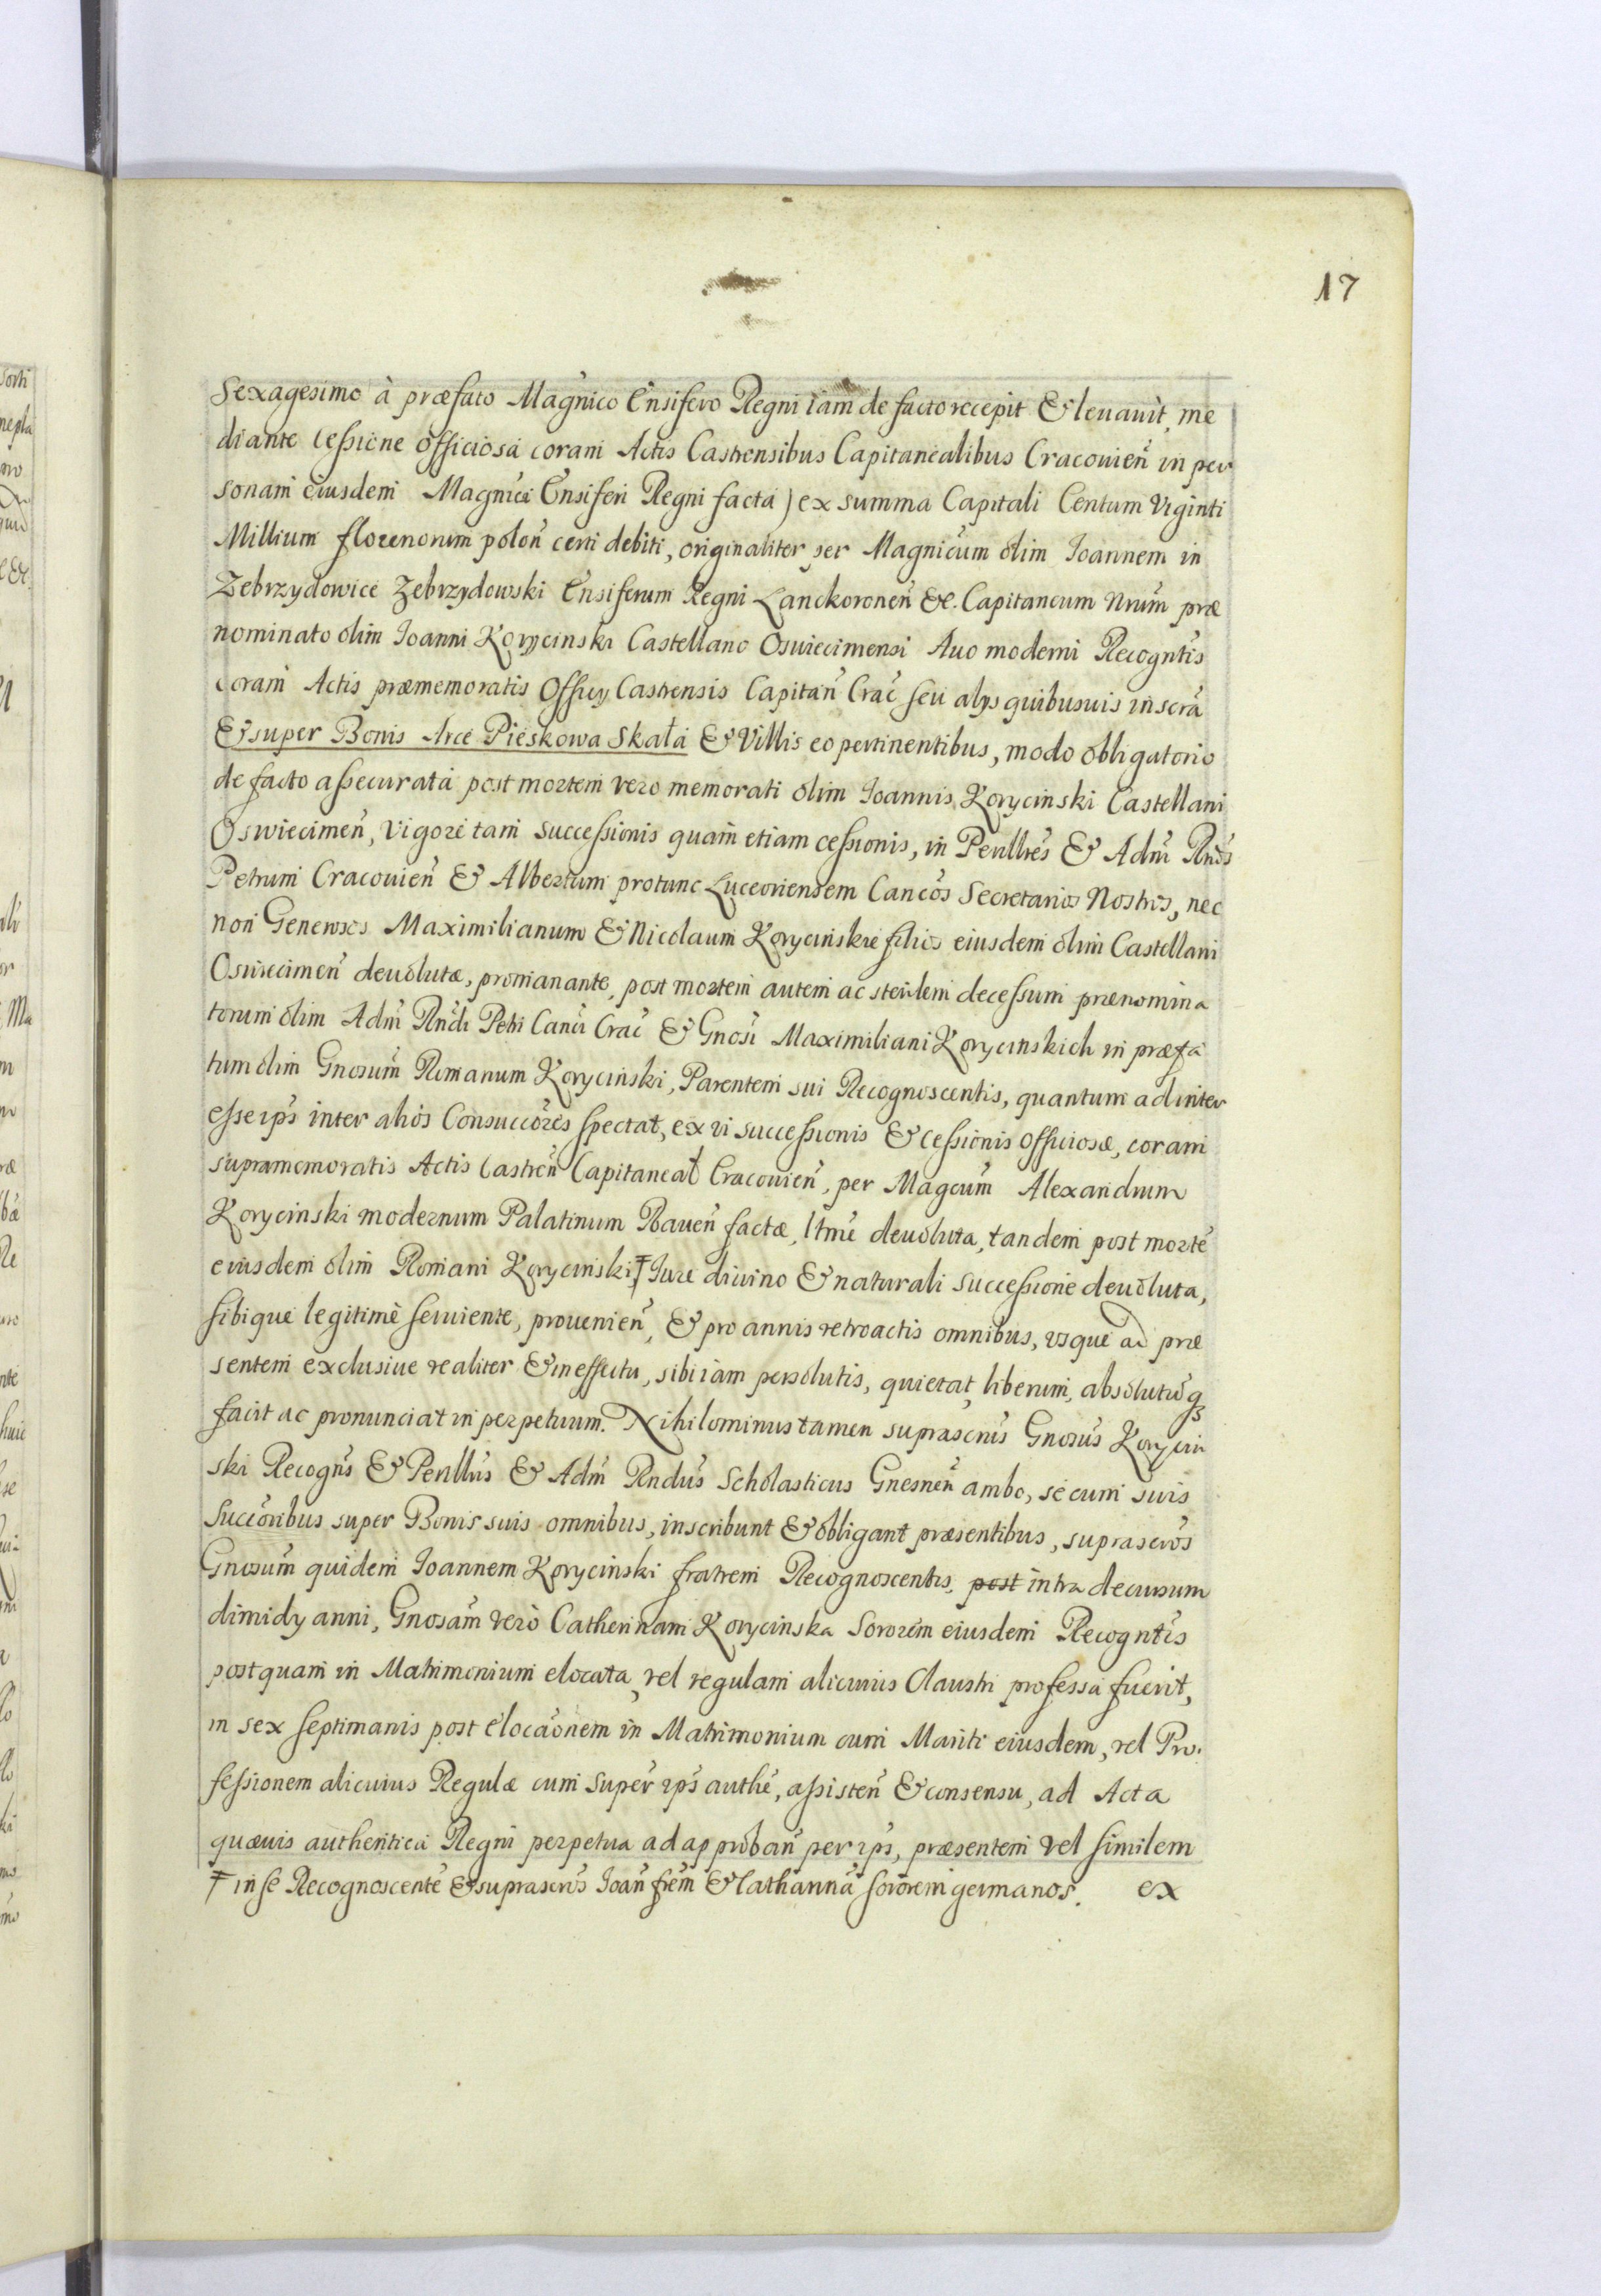 17
Sexagesimo à præfato Magnico Ensifero Regni iam de facto recepit & leuauit, me
diante cessione officiosa coram Actis Castrensibus Capitanealibus Cracouien̄ in per
sonam eiusdem Magnici Ensiferi Regni facta) ex summa Capitali Centum Viginti
Millium florenorum polon̄ certi debiti, originaliter per Magnicum olim Ioannem in
Zebrzydowice Zebrzydowski Ensiferum Regni Lanckoronen̄ &c. Capitaneum Nrum præ
nominato olim Ioanni Korycinski Castellano Osuiecimensi Auo moderni Recogntis
coram Actis præmemoratis Officy Castrensis Capitan̄ Crac̄ seu alys quibusuis inscra
& super Bonis Arce Pieskowa Skała & Villis eo pertinentibus, modo obligatorio
de facto assecurata post mortem vero memorati olim Ioannis Korycinski Castellani
Oswiecimen̄, Vigore tam successionis quam etiam cessionis, in Perillres & Adm̄ Rndos
Petrum Cracouien̄ & Albertum protunc Luceoriensem Cancos Secretarios Nostros, nec
non Generosos Maximilianum & Nicolaum Korycinskie filios eiusdem olim Castellani
Osuiecimen̄ deuolutæ, promanante, post mortem autem ac sterilem decessum prænomina
torum olim Adm̄ Rndi Petri Canci Crac̄ & Gnosi Maximiliani Korycinskich in præfa
tum olim Gnosum Romanum Korycinski, Parentem sui Recognoscentis, quantum ad inter
esse ips̄ inter alios Consuccores spectat, ex vi successionis & cessionis officiosæ, coram
supramemoratis Actis Castren̄ Capitaneal Cracouien̄, per Magcum Alexandrum
Korycinski modernum Palatinum Rauen̄ factæ, ltme deuoluta, tandem post morte
eiusdem olim Romani Korycinski, Ŧ Iure diuino & naturali successione deuoluta,
sibique legitimè seruiente, prouenien̄, & pro annis retroactis omnibus, vsque ad præ
sentem exclusiue realiter & in effectu, sibi iam persolutis, quietat, liberum, absolutūq3
facit ac pronunciat in perpetuum. Nihilominus tamen suprascrus Gnosus Korycin
ski Recogns & Perillus & Adm̄ Rndus Scholasticus Gnesnen̄ ambo, se cum suis
Succoribus super Bonis suis omnibus, inscribunt & obligant præsentibus, suprascros
Gnosum quidem Ioannem Korycinski fratrem Recognoscentis, post intra decursum
dimidy anni, Gnosam verò Catherinam Korycinska Sororem eiusdem Recogntis
postquam in Matrimonium elocata, vel regulam alicuius Claustri professa fuerit,
in sex septimanis post elocaonem in Matrimonium cum Mariti eiusdem, vel Pro.
fessionem alicuius Regulæ cum Super ips̄ authe, assisten̄ & consensu, ad Acta
quæuis authentica Regni perpetua ad approban̄ per ips̄, præsentem vel similem
Ŧ in se Recognoscente & suprascros Ioan̄ frem & Catharinā sororem germanos. ex